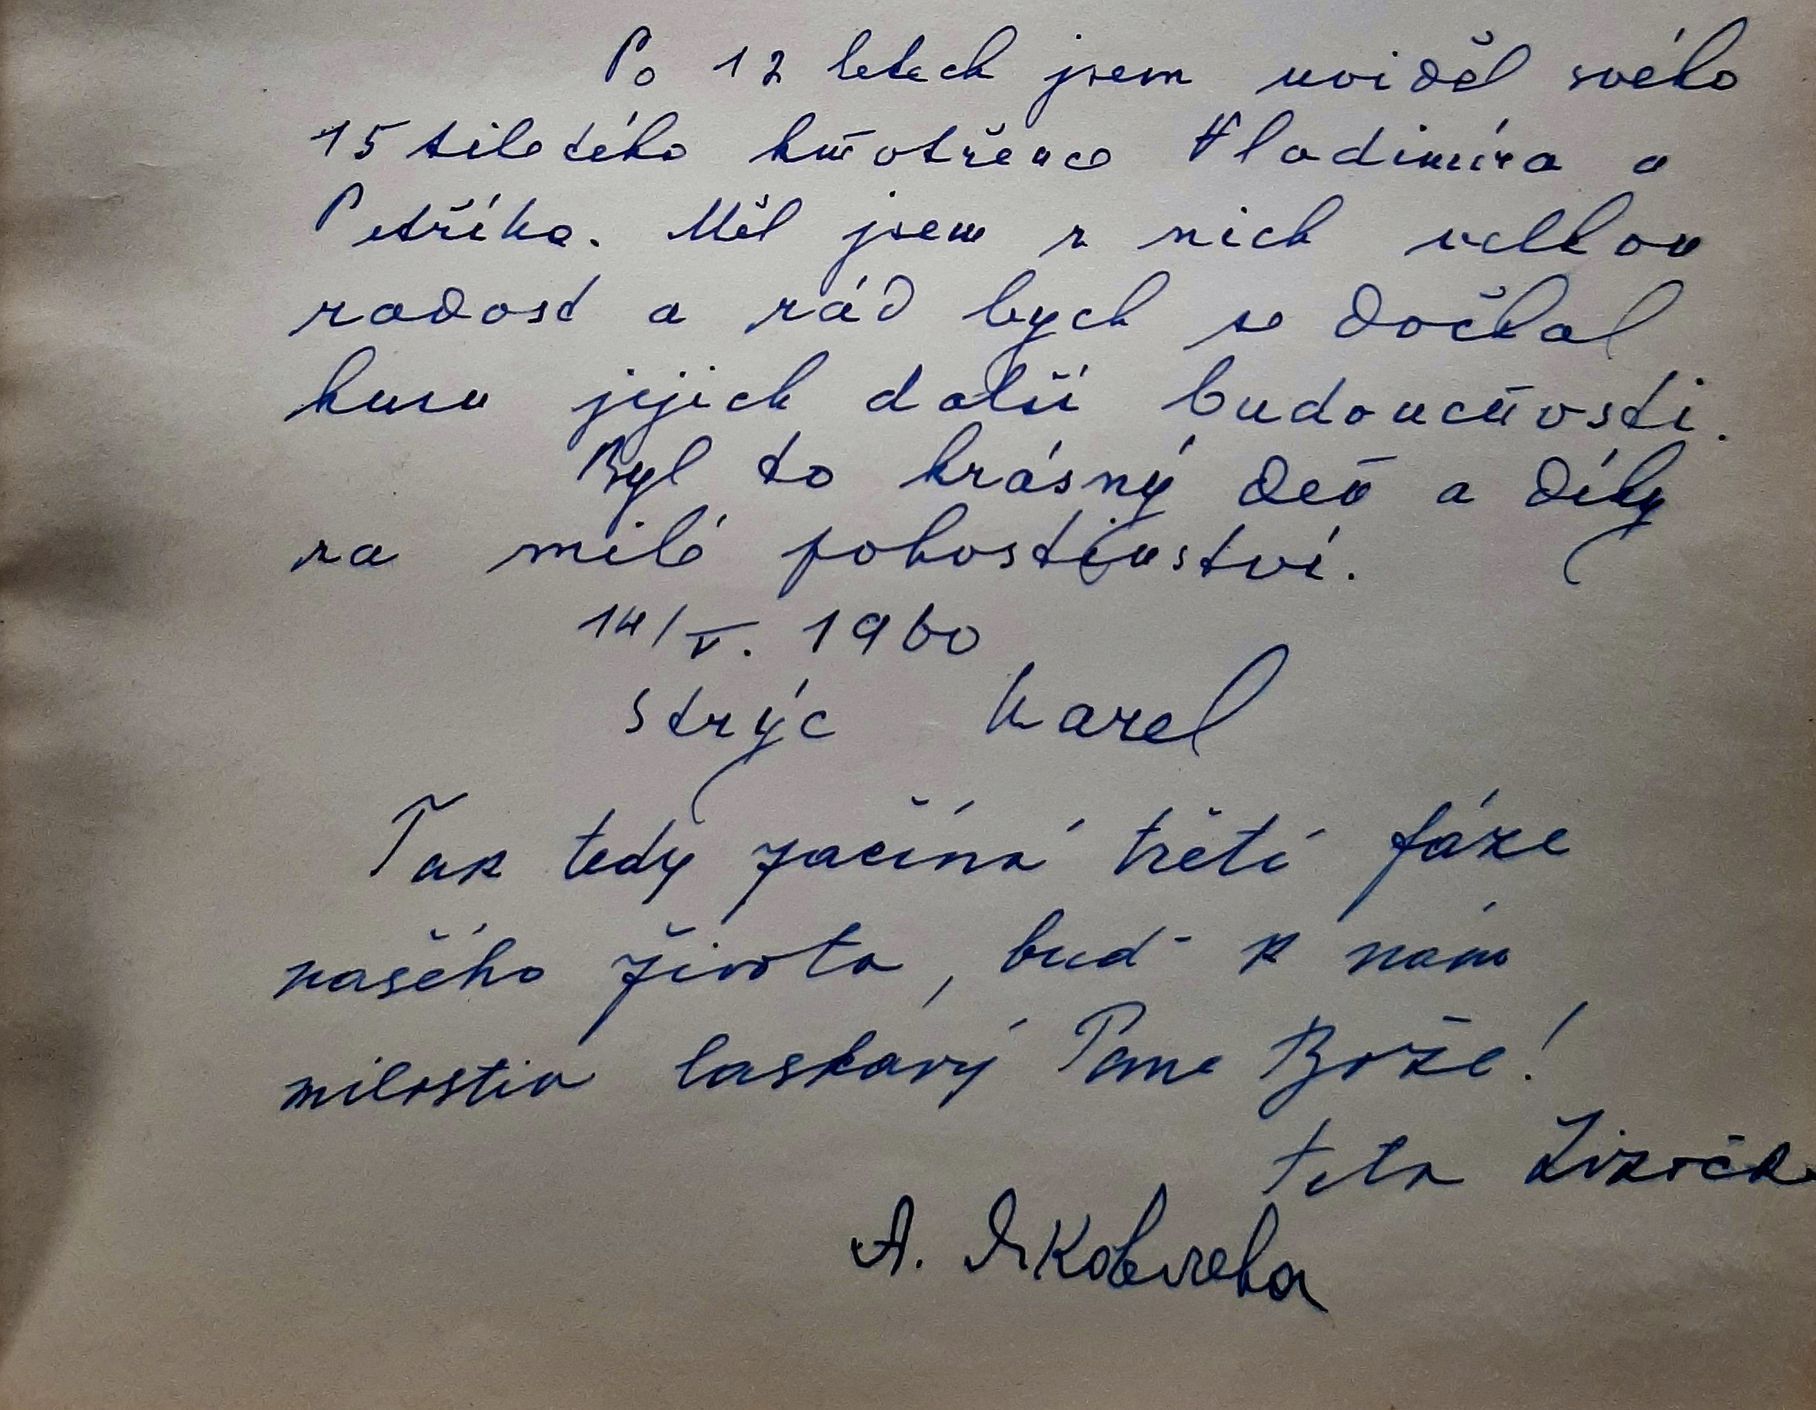 Po 12 letech jsem uviděl svého
15 tiletého kmotřence Vladimíra a
Petříka. Měl jsem z nich velkou
radost a rád bych se dočkal
kusu jejich další budoucnosti.
Byl to krásný den a díky
za milé pohostinství.
14/V. 1960
strýc Karel
Tak tedy začíná třetí fáze
našeho života, buď k nám
milostiv laskavý Pane Bože!
teta
А. Яковлева